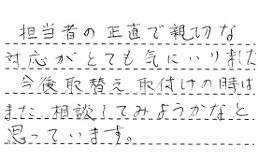 担当者の正直で親切な
対応がとても気にいりました
今後取替え取付けの時は
また相談してみようかなと
思っています。